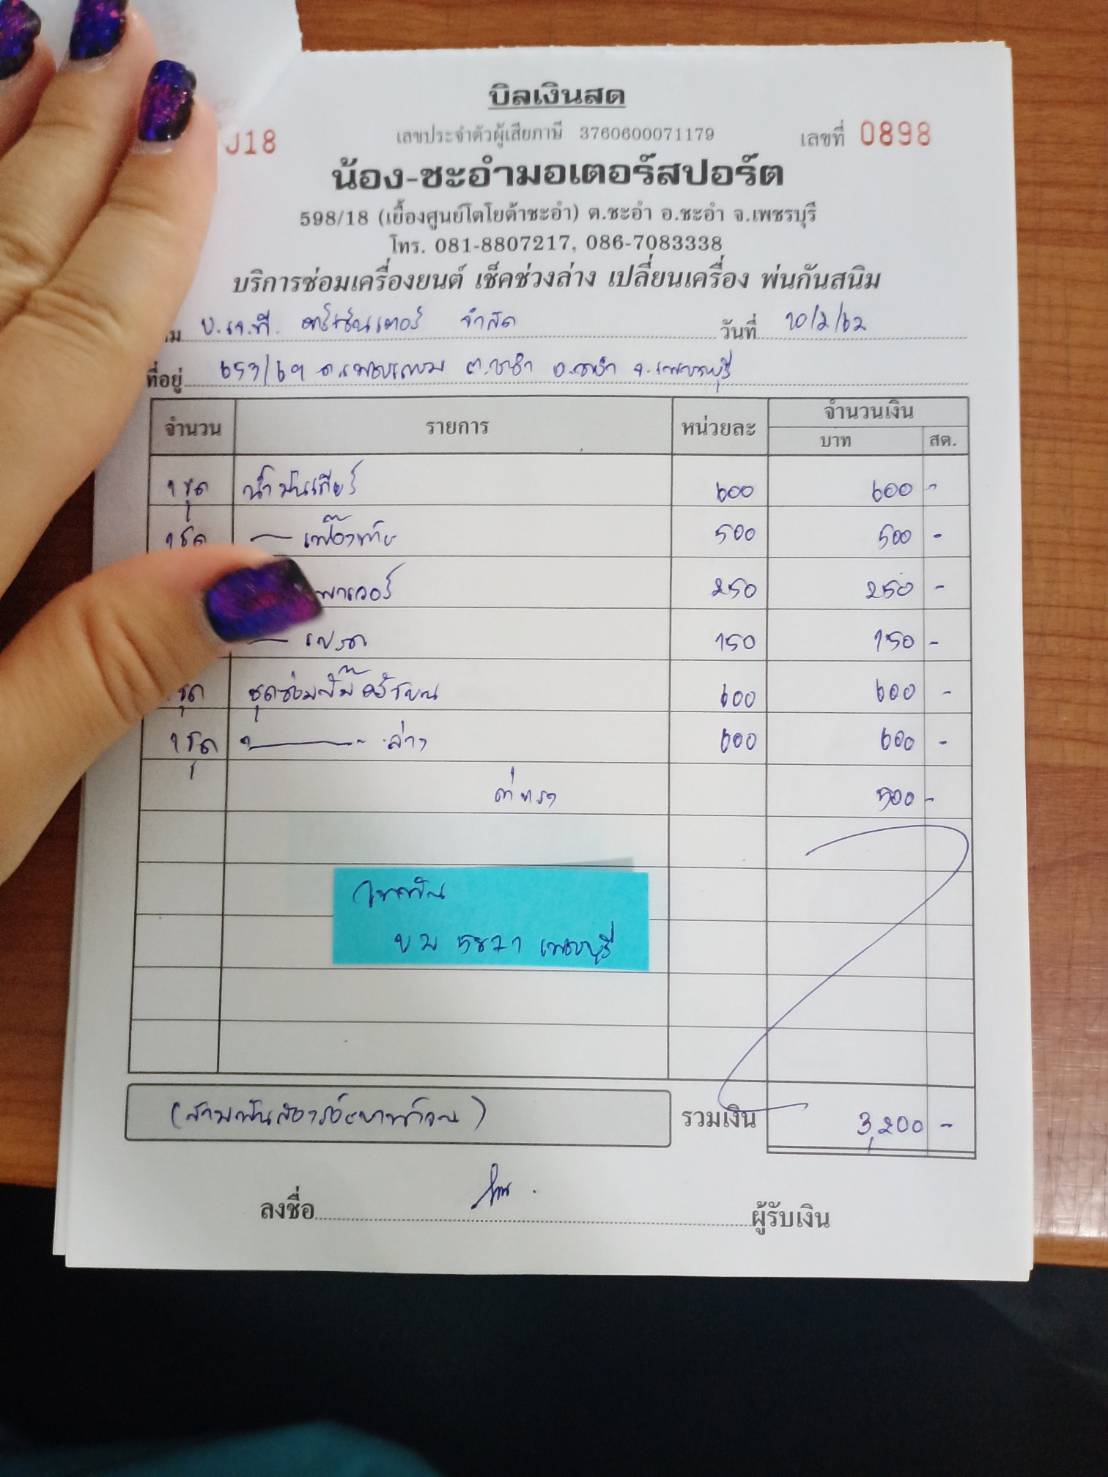 บิลเงินสด
J18
เลขประจำตัวผู้เสียภาษี 3760600071179
เลขที่ 0898
น้อง-ชะอำมอเตอร์สปอร์ต
598/18 (เยื้องศูนย์โตโยต้าชะอำ) ต.ชะอำ อ.ชะอำ จ.เพชรบุรี
โทร. 081-8807217, 086-7083338
บริการซ่อมเครื่องยนต์ เช็คช่วงล่าง เปลี่ยนเครื่อง พ่นกันสนิม
บ.เจ.ที. จำกัด วันที่ 20/2/62
ที่อยู่ ต.ชะอำ อ.ชะอำ จ.เพชรบุรี
จำนวน รายการ หน่วยละ จำนวนเงิน
บาท สต.
1 ชุด น้ำมันเกียร์ 600 600 -
1 ชุด — เฟืองท้าย 500 500 -
พาเวอร์ 250 250 -
— เบรค 150 150 -
ชุด ชุดซ่อมปั๊มครัชบน 600 600 -
1 ชุด — ล่าง 600 600 -
ค่าแรง 500 -
บม 5821 เพชรบุรี
(สามพันสองร้อยบาทถ้วน) รวมเงิน 3,200 -
ลงชื่อ ผู้รับเงิน